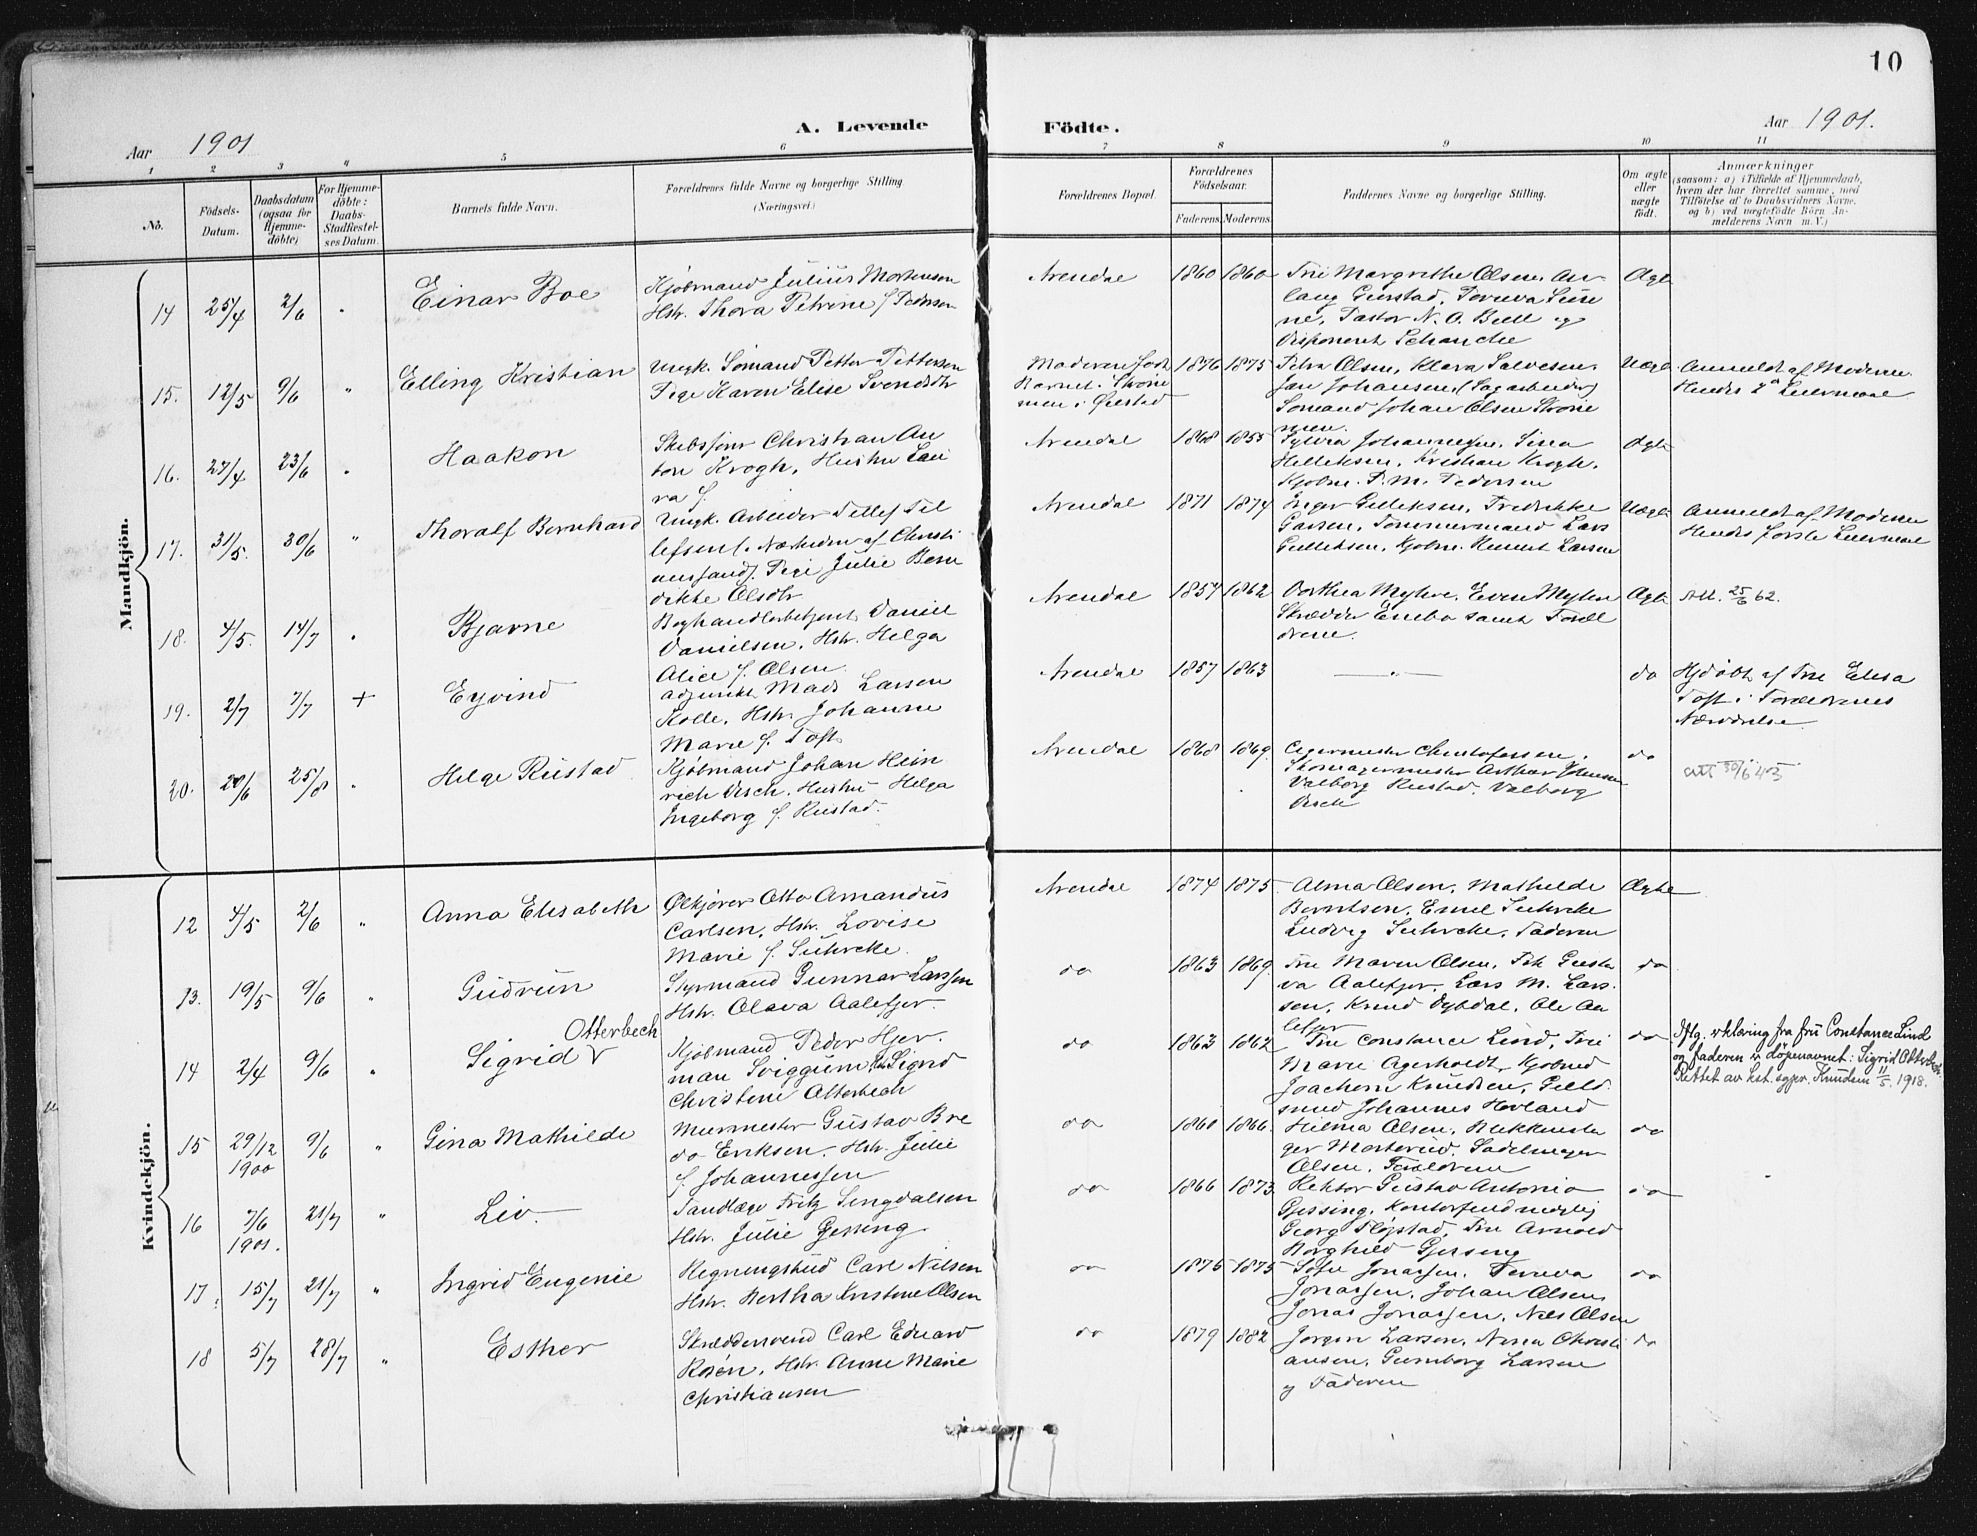 10
Aar 1901
A. Levende
Födte.
Aar 1901.
1 2 3 4 5 6 7 8 9 10 11
No.
Födsels-
Datum.
Daabsdatum
(ogsaa for
Hjemme-
döbte)
For Hjemme-
döbte:
Daabs-
Stadfæstel-
ses Datum.
Barnets fulde Navn.
Forældrenes fulde Navne og borgerlige Stilling
(Næringsvei.)
Forældrenes Bopæl.
Forældrenes
Födselsaar.
Faderens. Moderens.
Faddernes Navne og borgerlige Stilling.
Om ægte
eller
uægte
födt.
Anmærkninger
(saasom: a) i Tilfælde af Hjemmedaab,
hvem der har forrettet samme, med
Tilföielse af to Daabsvidners Navne,
og b) ved uægtefödte Börn An-
melderens Navn m. V.)
Mandkjön.
14 25/4 2/6 " Einar Boe
Kjöbmand Julius Mortensen
Hstr. Thora Petrine f. Pedersen
Arendal 1860 1860
Fru Margrethe Olsen, As-
laug Gjerstad,
Pastor N. O. Bull og
Disponent Schanche
Ægte
15. 12/5 9/6 " Elling Kristian
Ungk. Sömand Petter Pettersen
Pige Karen Elise Svendsdtr
Moderen
Barnet
men i Øiestad
1876 1875
Petra Olsen, Klara Salvesen,
Jan Johansen, (Sagarbeider)
Sömand Johan Olsen Strøm
men.
Uægte
Anmeldt af Moderen.
Hendes 2 Leiermaal
16. 27/4 23/6 " Haakon
Skibsförer Christian An
ton Krogh, Hustru Lau
ra f.
Arendal 1868 1855
Sylvia Johannesen, Sina
Helleksen, Kristiane Krogh,
Kjöbm. P. M. Pedersen
Ægte
17. 31/5. 30/6 " Thoralf Bernhard
Ungk. Arbeider Detlef Til
lefsen (. Nærheden af Christi
anssand). Pige Julie Bern
dikte Olsdtr
Arendal 1871 1874
Inger Gulleksen, Fredrikke
Larsen, Tømmermand Lars
Gulleksen, Kjöbm. Larsen
Uægte
Anmeldt af Moderen
Hendes förste Leiermaal
18. 4/5. 14/7 " Bjarne
Boghandlerbetjent Daniel
Danielsen, Hstr. Helga
Alice f. Olsen
Arendal 1857 1862
Dorthea Myhre, Even Myhre
Skrædder Enebo samt Foræl
drene.
Ægte
Att. 25/6 62.
19. 2/7 7/7 + Eyvind
Adjunkt Mads Larsen
Kolle, Hstr. Johanne
Marie f. Toft
Arendal 1857 1863
— " —
do
Hjdöbt af Fru Elisa
Toft i Forældrenes
Nærværelse
20. 20/6 25/8 " Helge Rustad
Kjöbmand Johan Hein
rich Øisch, Hustru Helga
Ingeborg f. Rustad.
Arendal 1868 1869.
Christofersen,
Skomagermester Arthur Johnsen
Valborg Rustad, Valborg
Øisch
do
att 30/6 43
Kvindekjön.
12 4/5 2/6 " Anna Elisabeth
Ølkjører Otto Amandus
Carlsen, Hstr. Lovise
Marie f. Suhrcke.
Arendal 1874 1875.
Alma Olsen, Mathilde
Berntsen, Emil Suhrcke
Ludvig Suhrcke, Faderen
Ægte
13. 19/5 9/6 " Gudrun
Styrmand Gunnar Larssen
Hstr. Olava Aalefjær.
do 1863 1869.
Fru Maren Olsen, Frk Gusta
va Aalefjær, Lars M. Lars
sen, Knud Dybdal, Ole Aa
lefjær
do
14 2/4 9/6 " Sigrid Otterbech
Kjöbmand Peder Hjer.
man Sviggum, Hstr Sigrid
Christine Otterbech
do 1863 1862
Fru Constance Lind, Fru
Marie Agerholdt, Kjöbmd
Joachim Knudsen, Fuld
mnd Johannes Hovland
do
Iflg. erklæring fra fru Constance Lind
og faderen er döpenavnet: Sigrid Otterbech.
Rettet av kst. sgpr. Knudsen 11/5. 1918.
15 29/12 1900 9/6 " Gina Mathilde
Murmester Gustav Bre
do Eriksen, Hstr. Julie
f. Johannessen
do 1860 1866.
Hilma Olsen, Blikkensla
ger Morterud, Sadelmager
Olsen, Forældrene
do
16 7/6 1901. 21/7 " Liv.
Tandlæge Fritz Singdalsen
Hstr. Julie Gjessing.
do 1866 1873
Rektor Gustav Antonio
Gjessing, Kontorfuldmægtig
Georg Fløjstad, Fru Arnold
Borghild Gjessing
do
17 15/7 21/7 " Ingrid Eugenie
Regningsbud Carl Nilsen
Hstr. Bertha Kristine Olsen
do 1875 1875
Sofie Jonassen, Tomeva
Jonassen, Johan Olsen,
Jonas Jonassen, Nils Olsen
do
18 5/7 28/7 " Esther
Skræddersvend Carl Eduard
Rosén, Hstr. Anne Marie
Christiansen
do 1879 1882
Jørgen Larsen, Christi
ansen, Gunborg Larsen
og Faderen
do